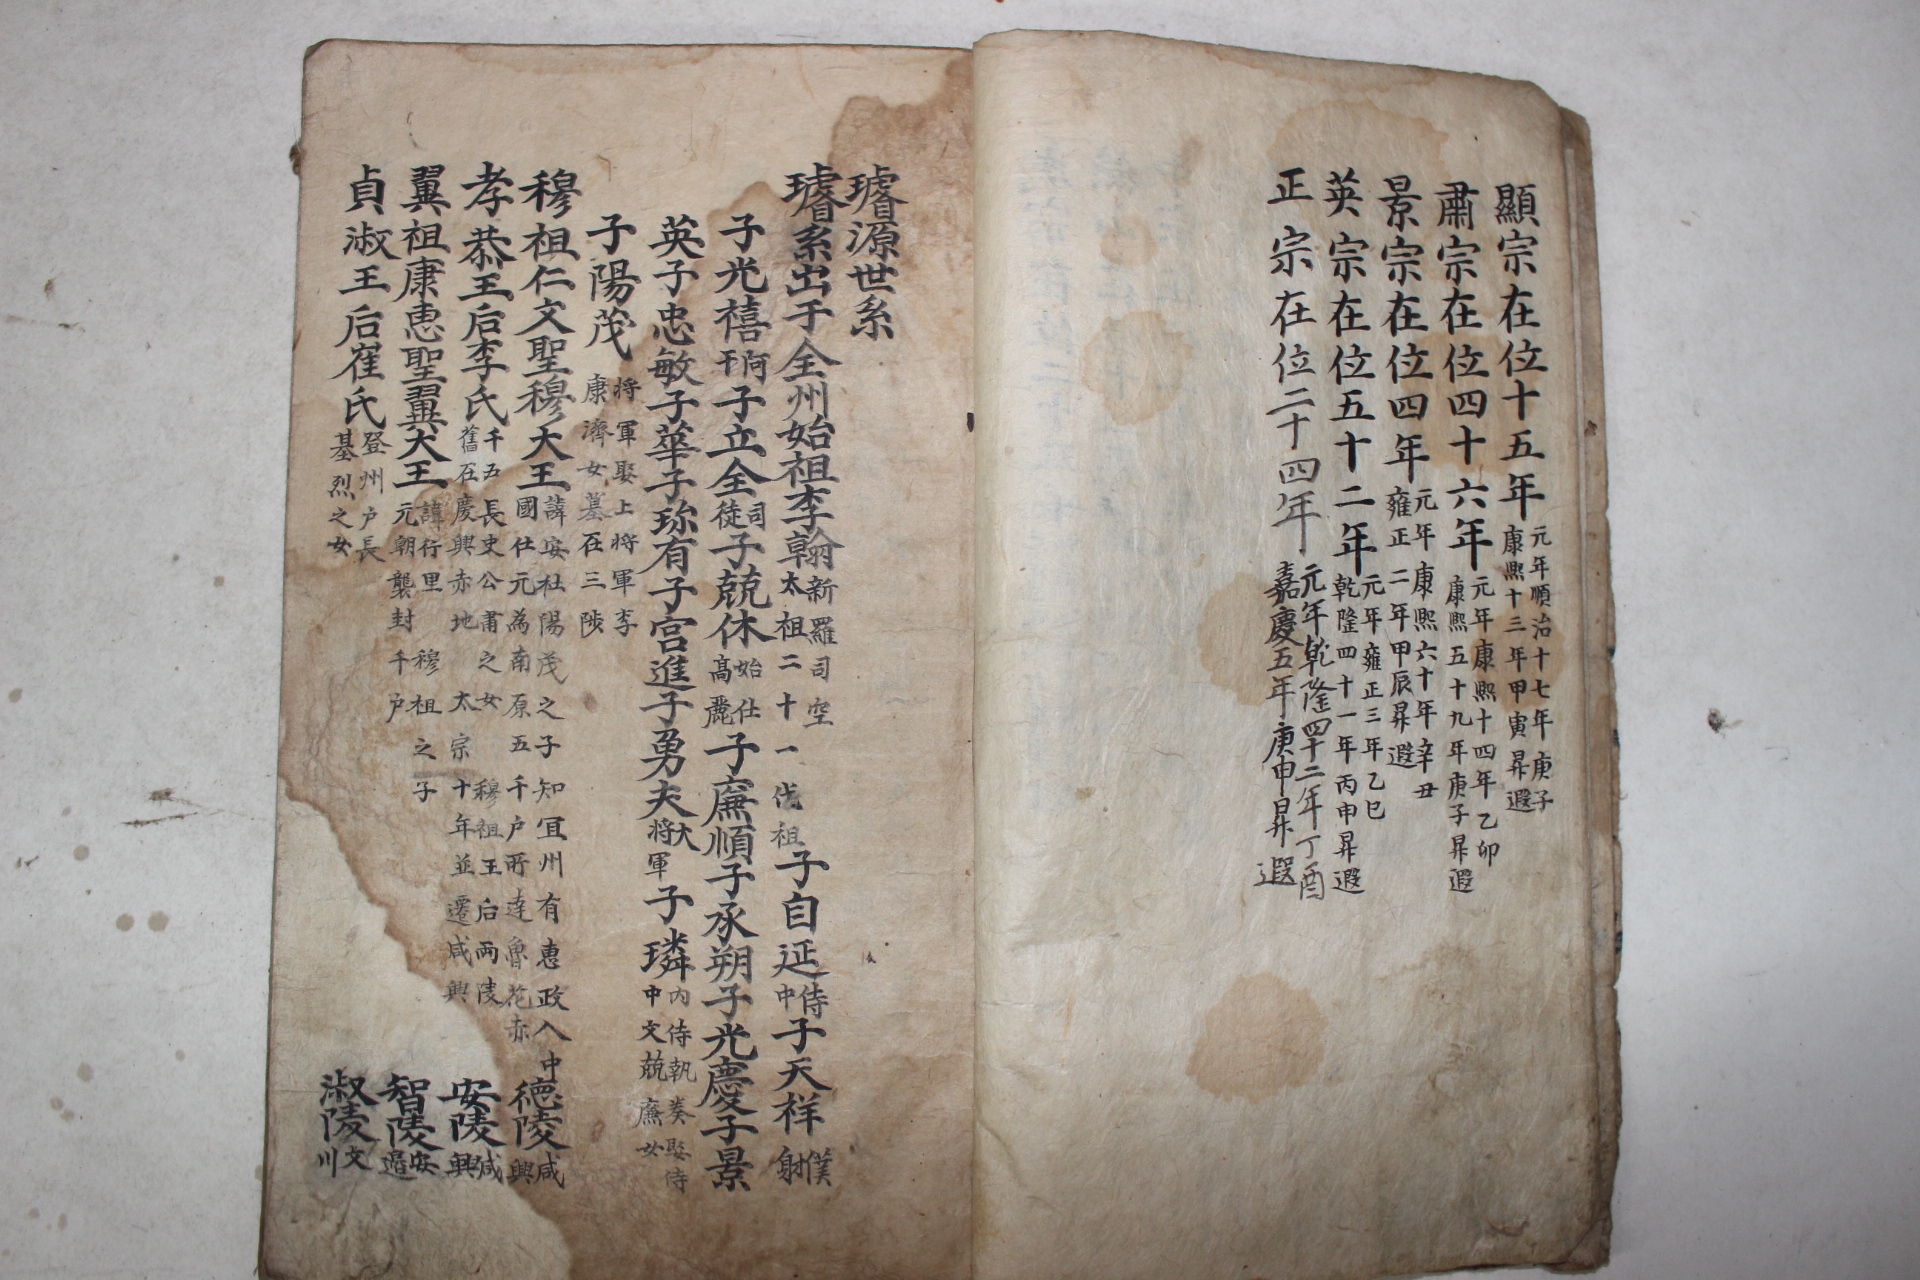 顯宗在位十五年 元年順治十七年庚子 康熙十三年甲寅昇遐
肅宗在位四十六年 元年康熙十四年乙卯 康熙五十九年庚子昇遐
景宗在位四年 元年康熙六十年辛丑 雍正二年甲辰昇遐
英宗在位五十二年 元年雍正三年乙巳 乾隆四十一年丙申昇遐
正宗在位二十四年 元年乾隆四十二年丁酉 嘉慶五年庚申昇遐
璿源世系
璿系出于全州始祖李翰 新羅司空 太祖二十一代祖 子自延 侍中 子天祥 僕射
子光禧 阿干 子立全 司徒 子兢休 始仕高麗 子廉順子承朔子光慶子景
英子忠敏子華子珎有子宮進子勇夫 大將軍 子璘 內侍執奏娶侍中文兢廉女
子陽茂 將軍娶上將軍李康濟女墓在三陟
穆祖仁文聖穆大王 諱安社陽茂之子知冝州有惠政入中國仕元為南原五千户所達魯花赤 德陵 咸興
孝恭王后李氏 千五長史公肅之女 穆祖王后兩陵舊在慶興赤地 太宗十年並遷咸興 安陵 咸興
翼祖康惠聖翼大王 諱行里 穆祖之子元朝襲封千户 智陵 安邊
貞淑王后崔氏 登州户長基烈之女 淑陵 文川